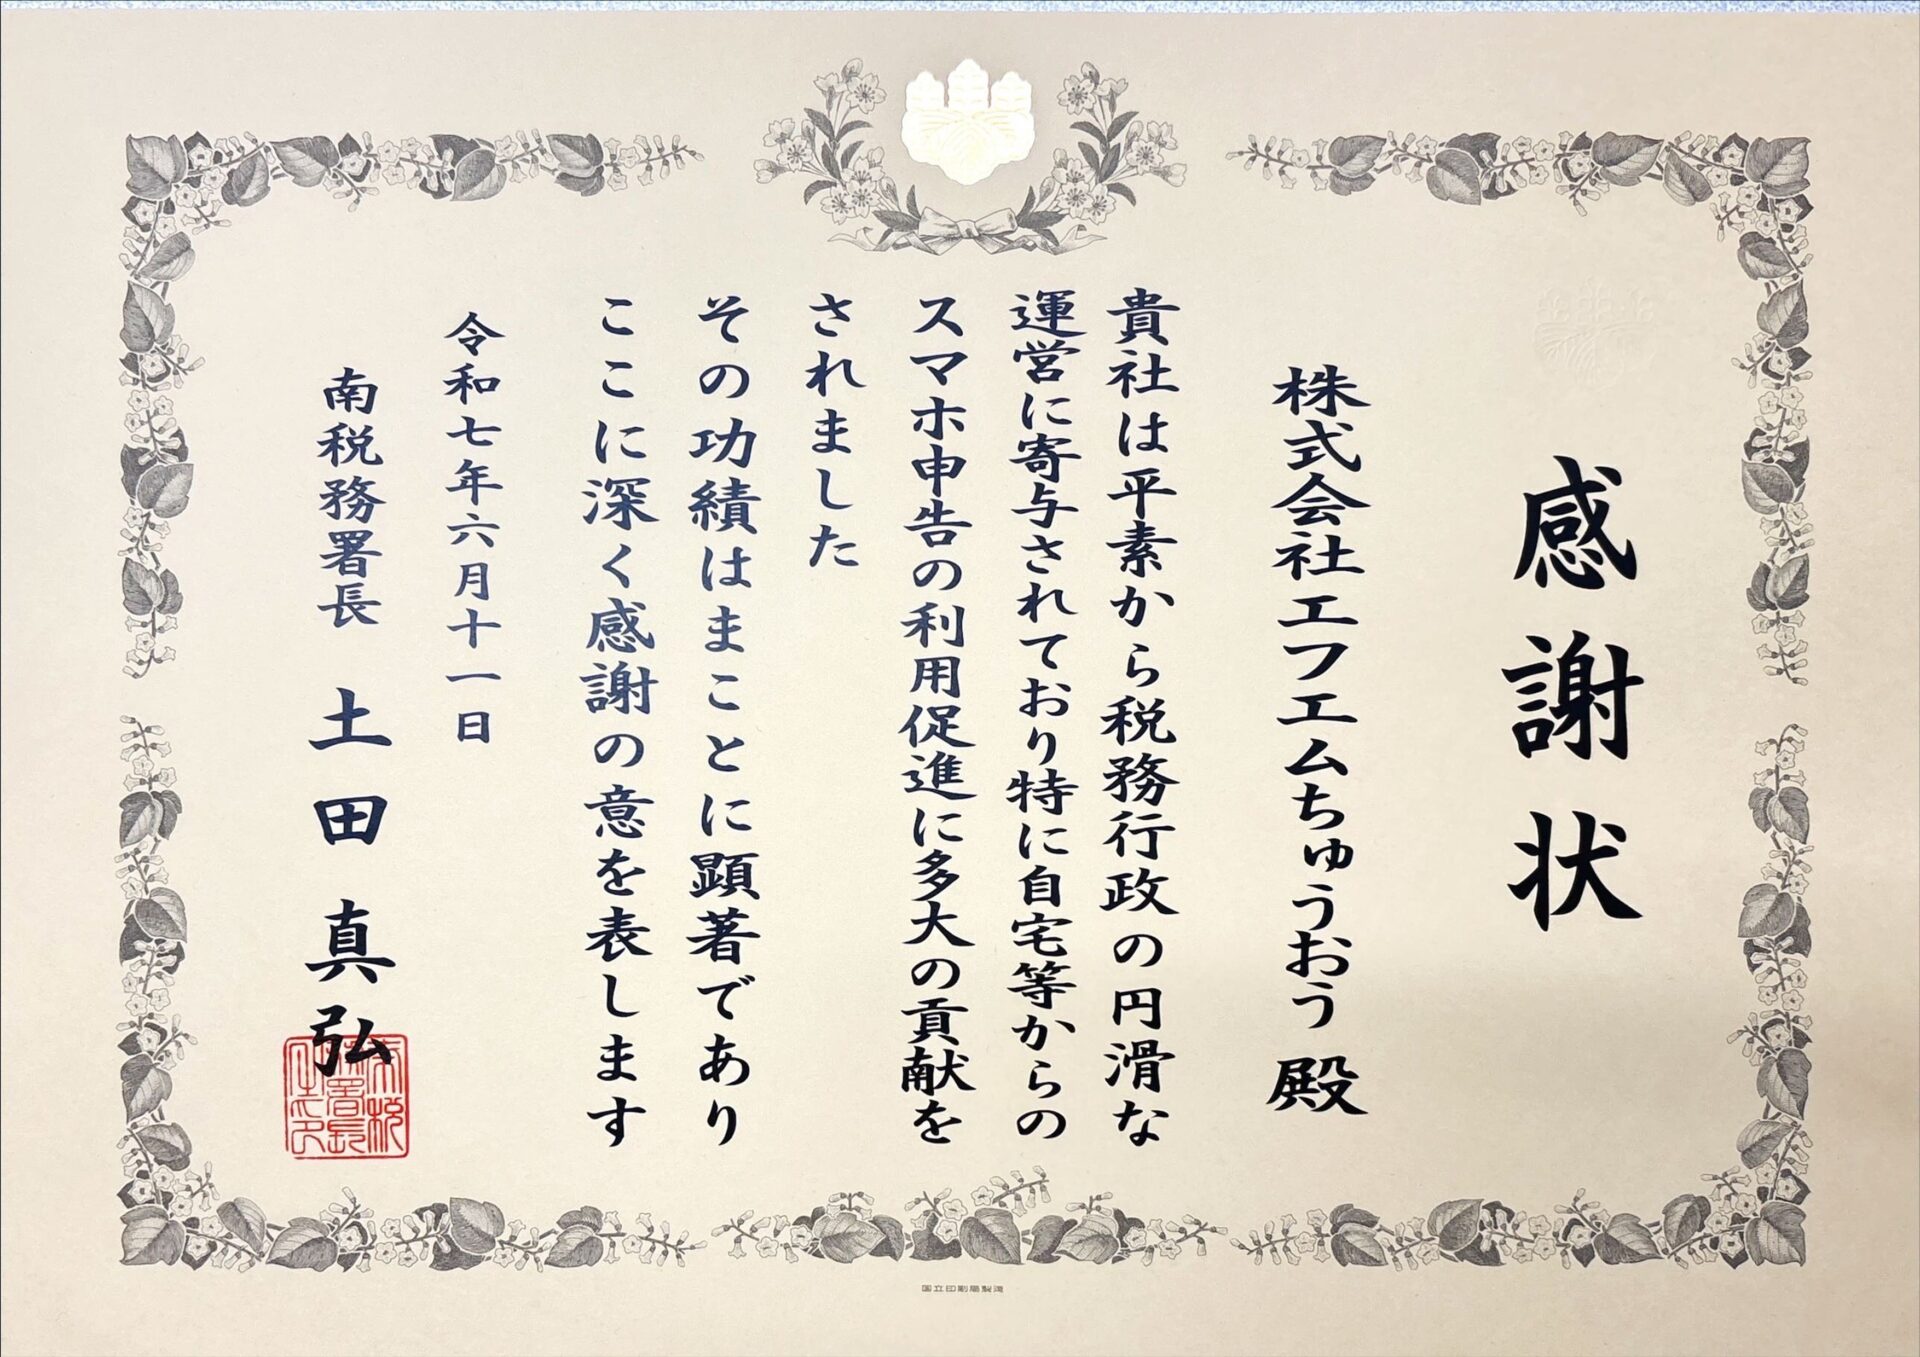 感謝状
株式会社エフエムちゅうおう 殿
貴社は平素から税務行政の円滑な
運営に寄与されており特に自宅等からの
スマホ申告の利用促進に多大の貢献を
されました
その功績はまことに顕著であり
ここに深く感謝の意を表します
令和七年六月十一日
南税務署長 土田真弘
国立印刷局製造